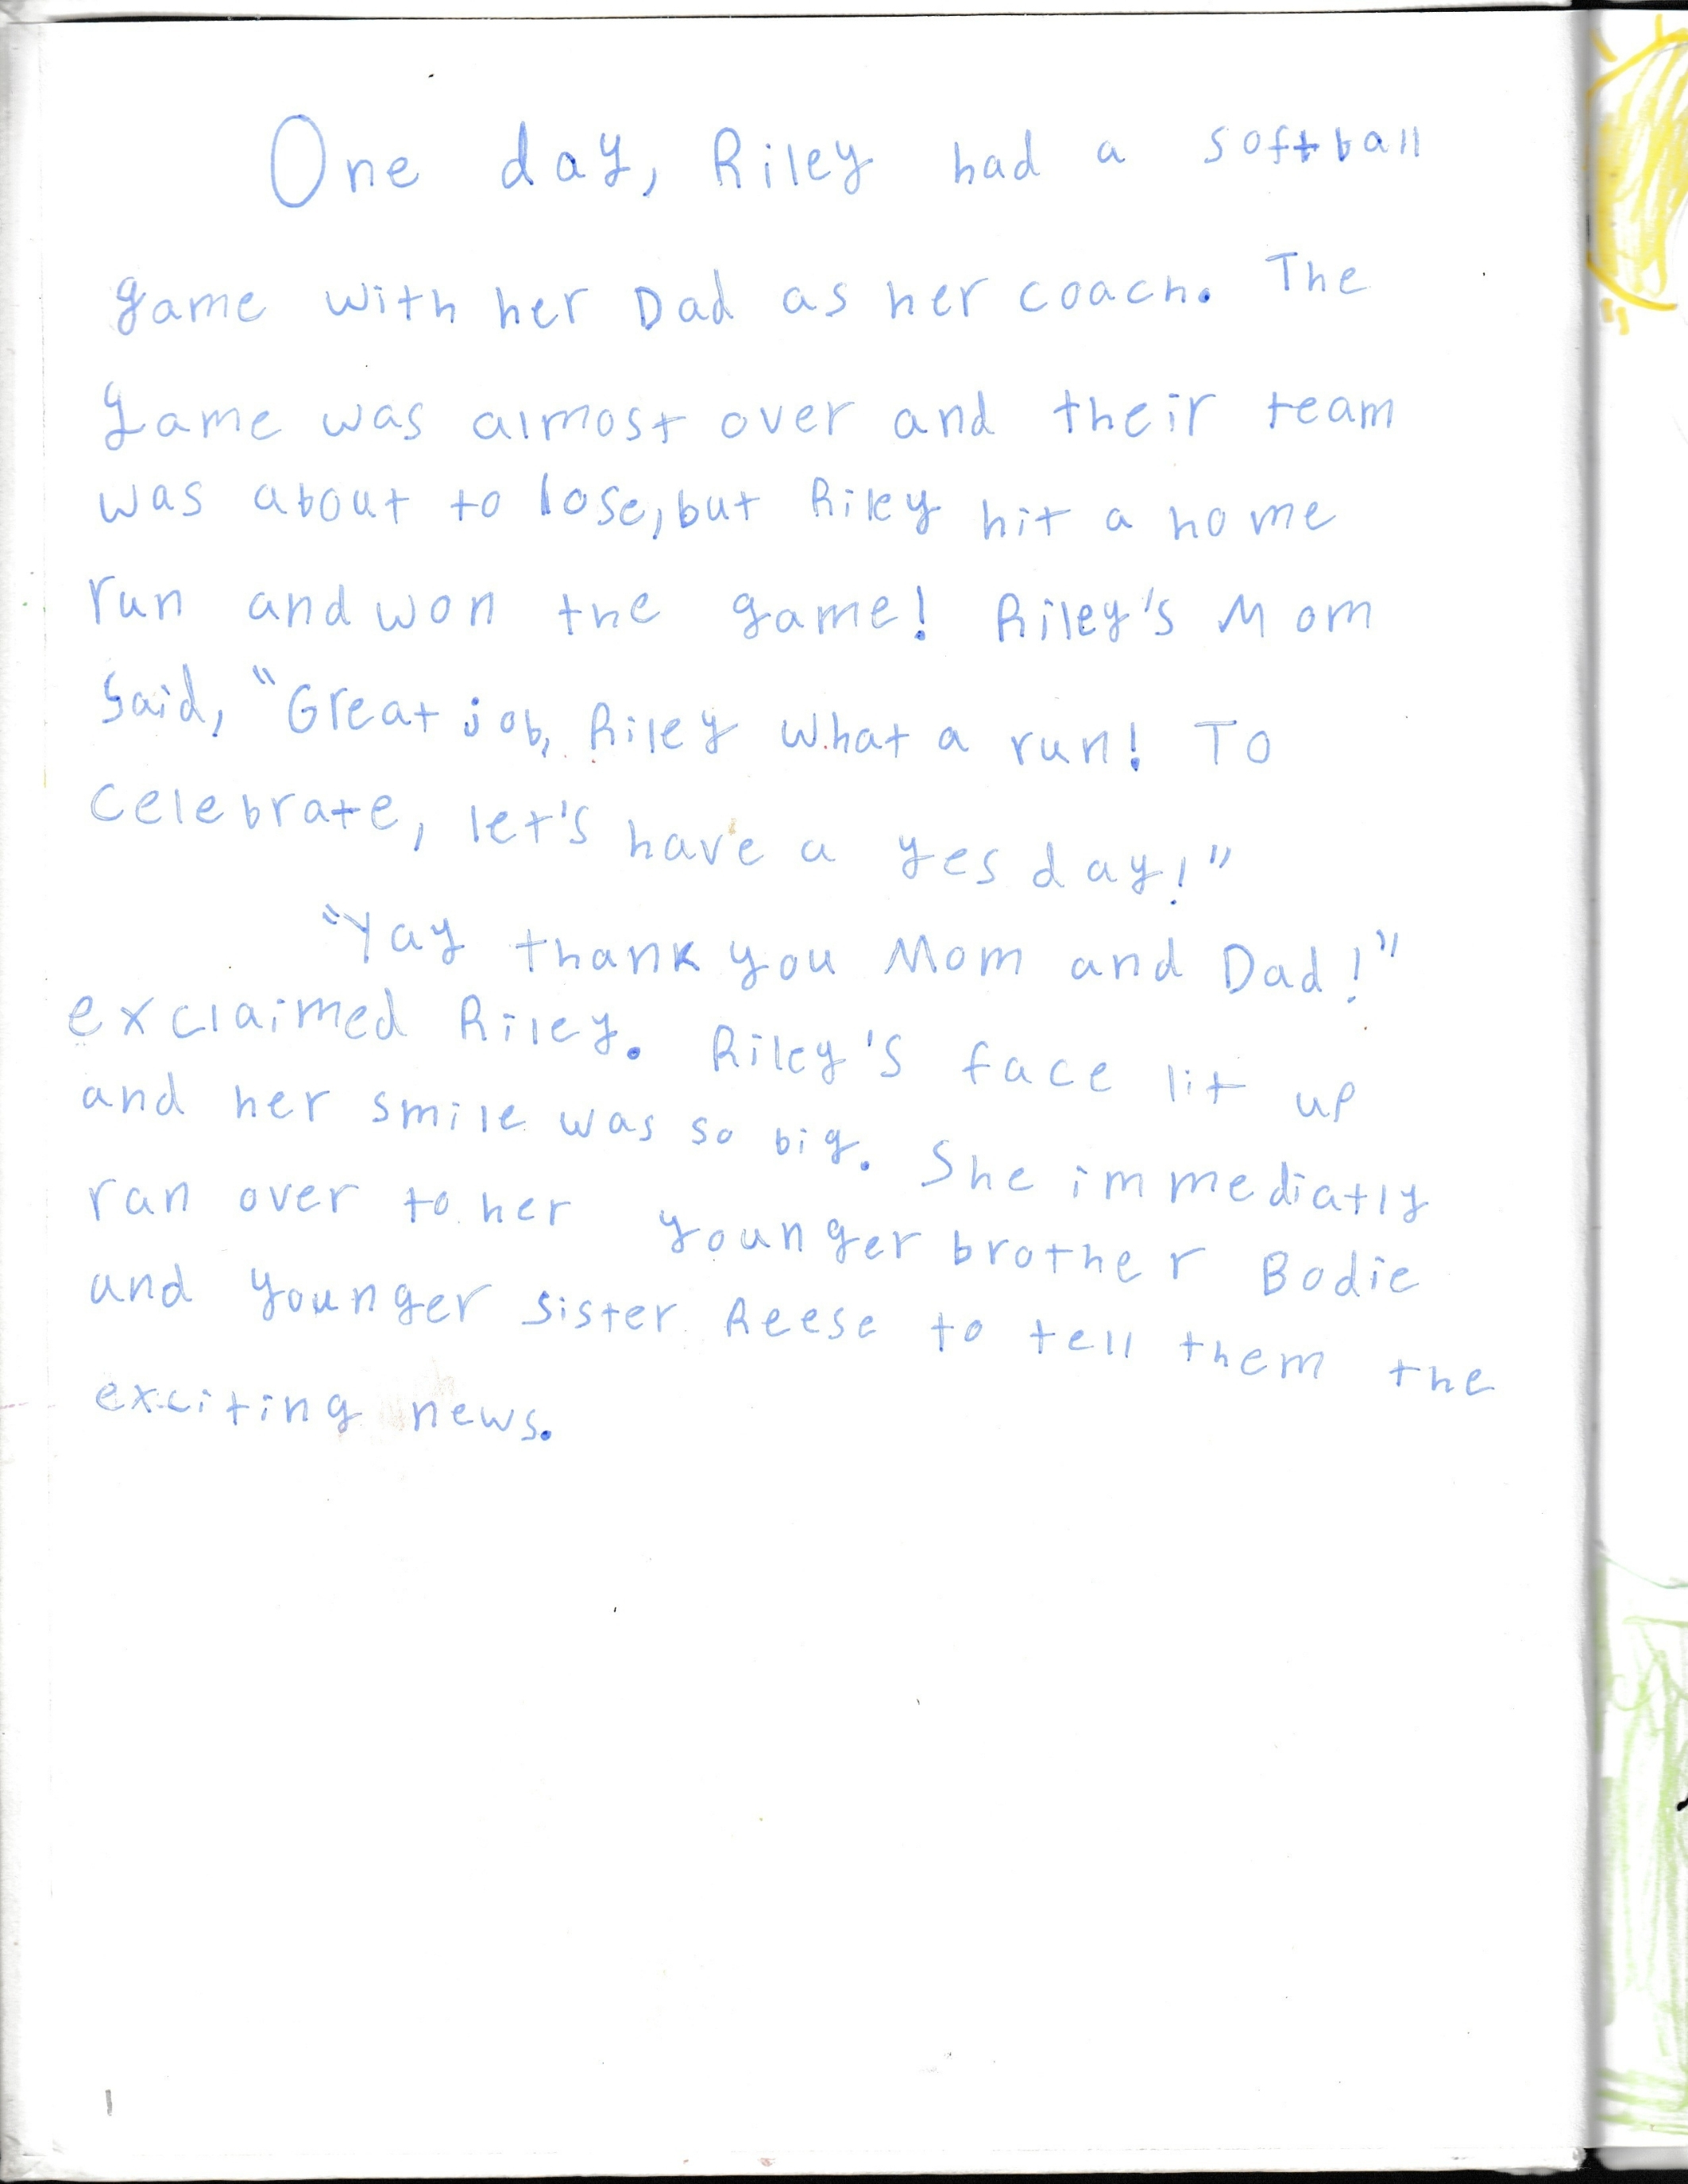 One day, Riley had a softball
game with her Dad as her coach. The
game was almost over and their team
was about to lose, but Riley hit a home
run and won the game! Riley's Mom
said, "Great job, Riley what a run! To
celebrate, let's have a yes day!"
"Yay thank you Mom and Dad!"
exclaimed Riley. Riley's face lit up
and her smile was so big. She immediatly
ran over to her younger brother Bodie
and younger sister Reese to tell them the
exciting news.
1